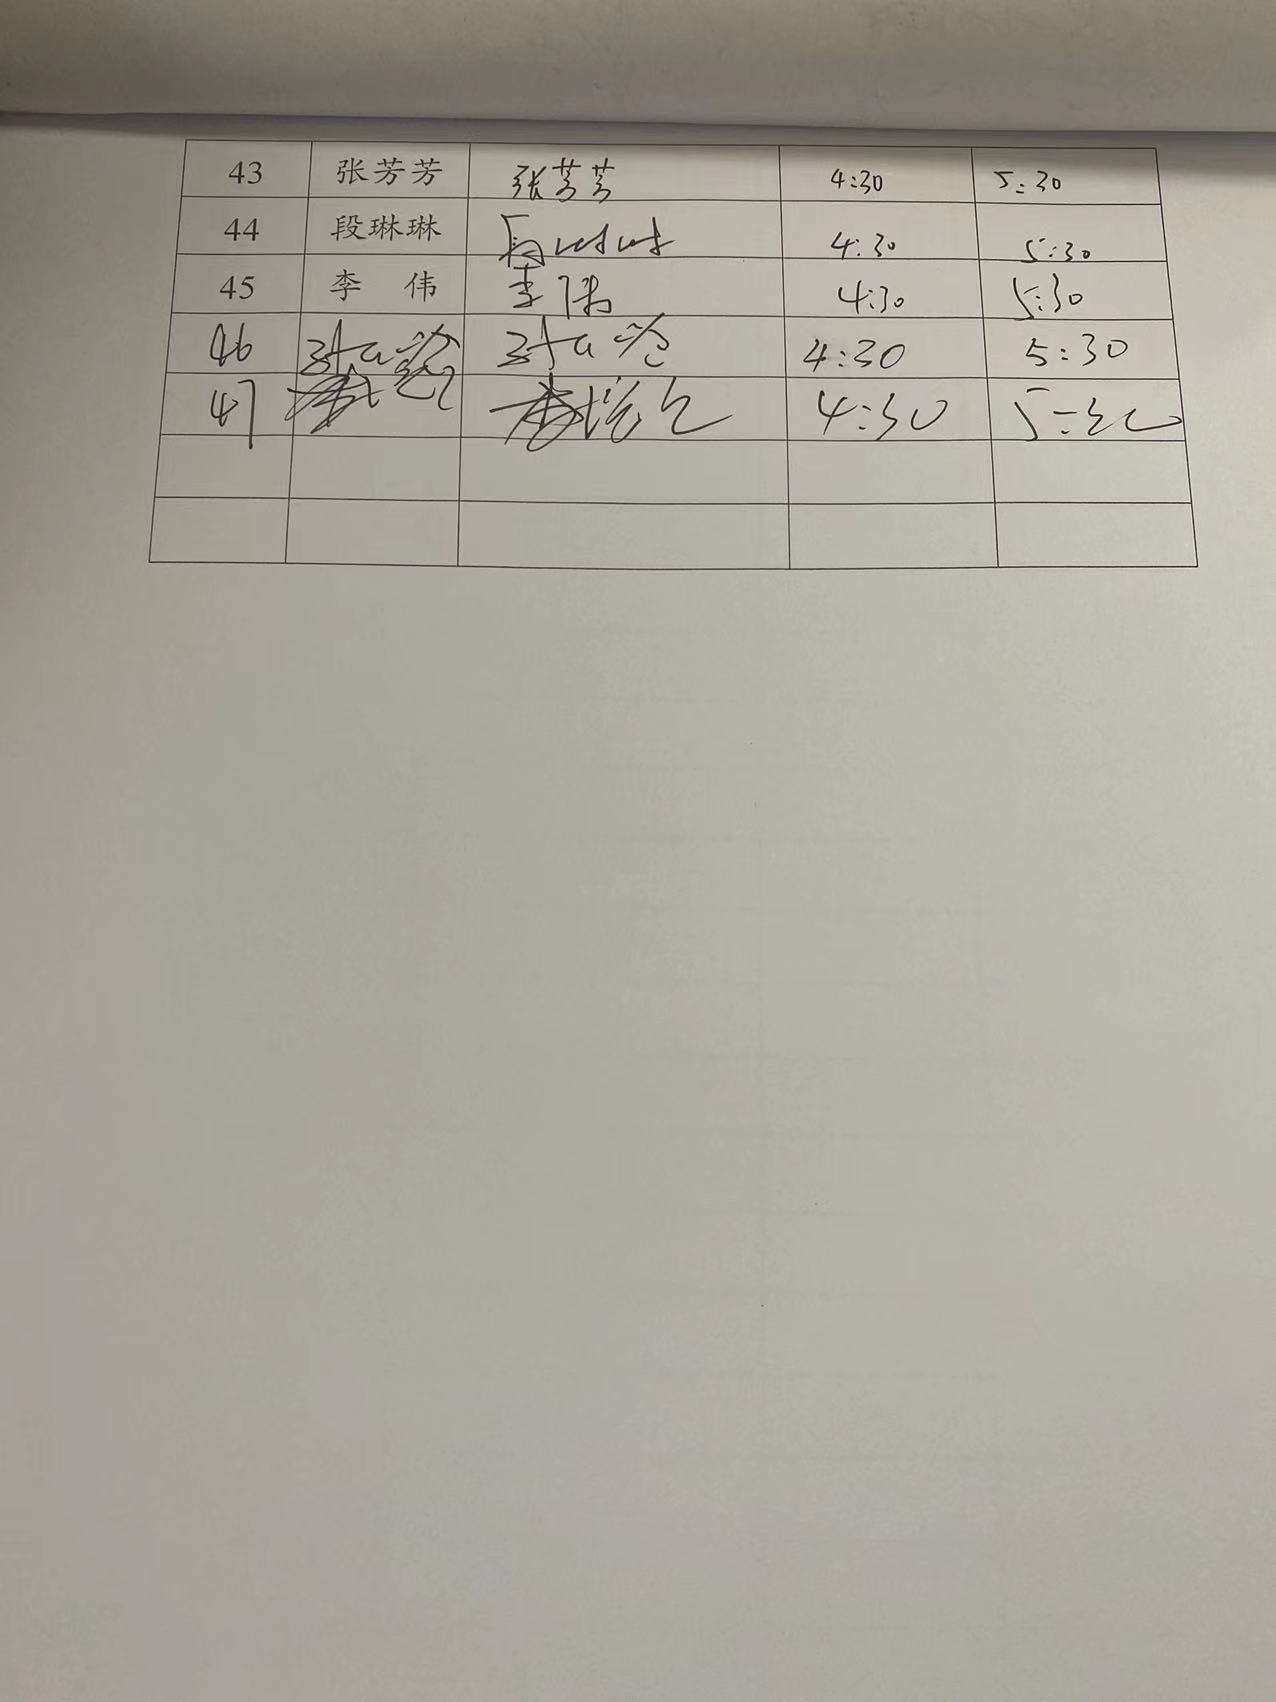 43 张芳芳 张芳芳 4:30 5:30
44 段琳琳 段琳琳 4:30 5:30
45 李 伟 李伟 4:30 5:30
46 4:30 5:30
47 4:30 5:30